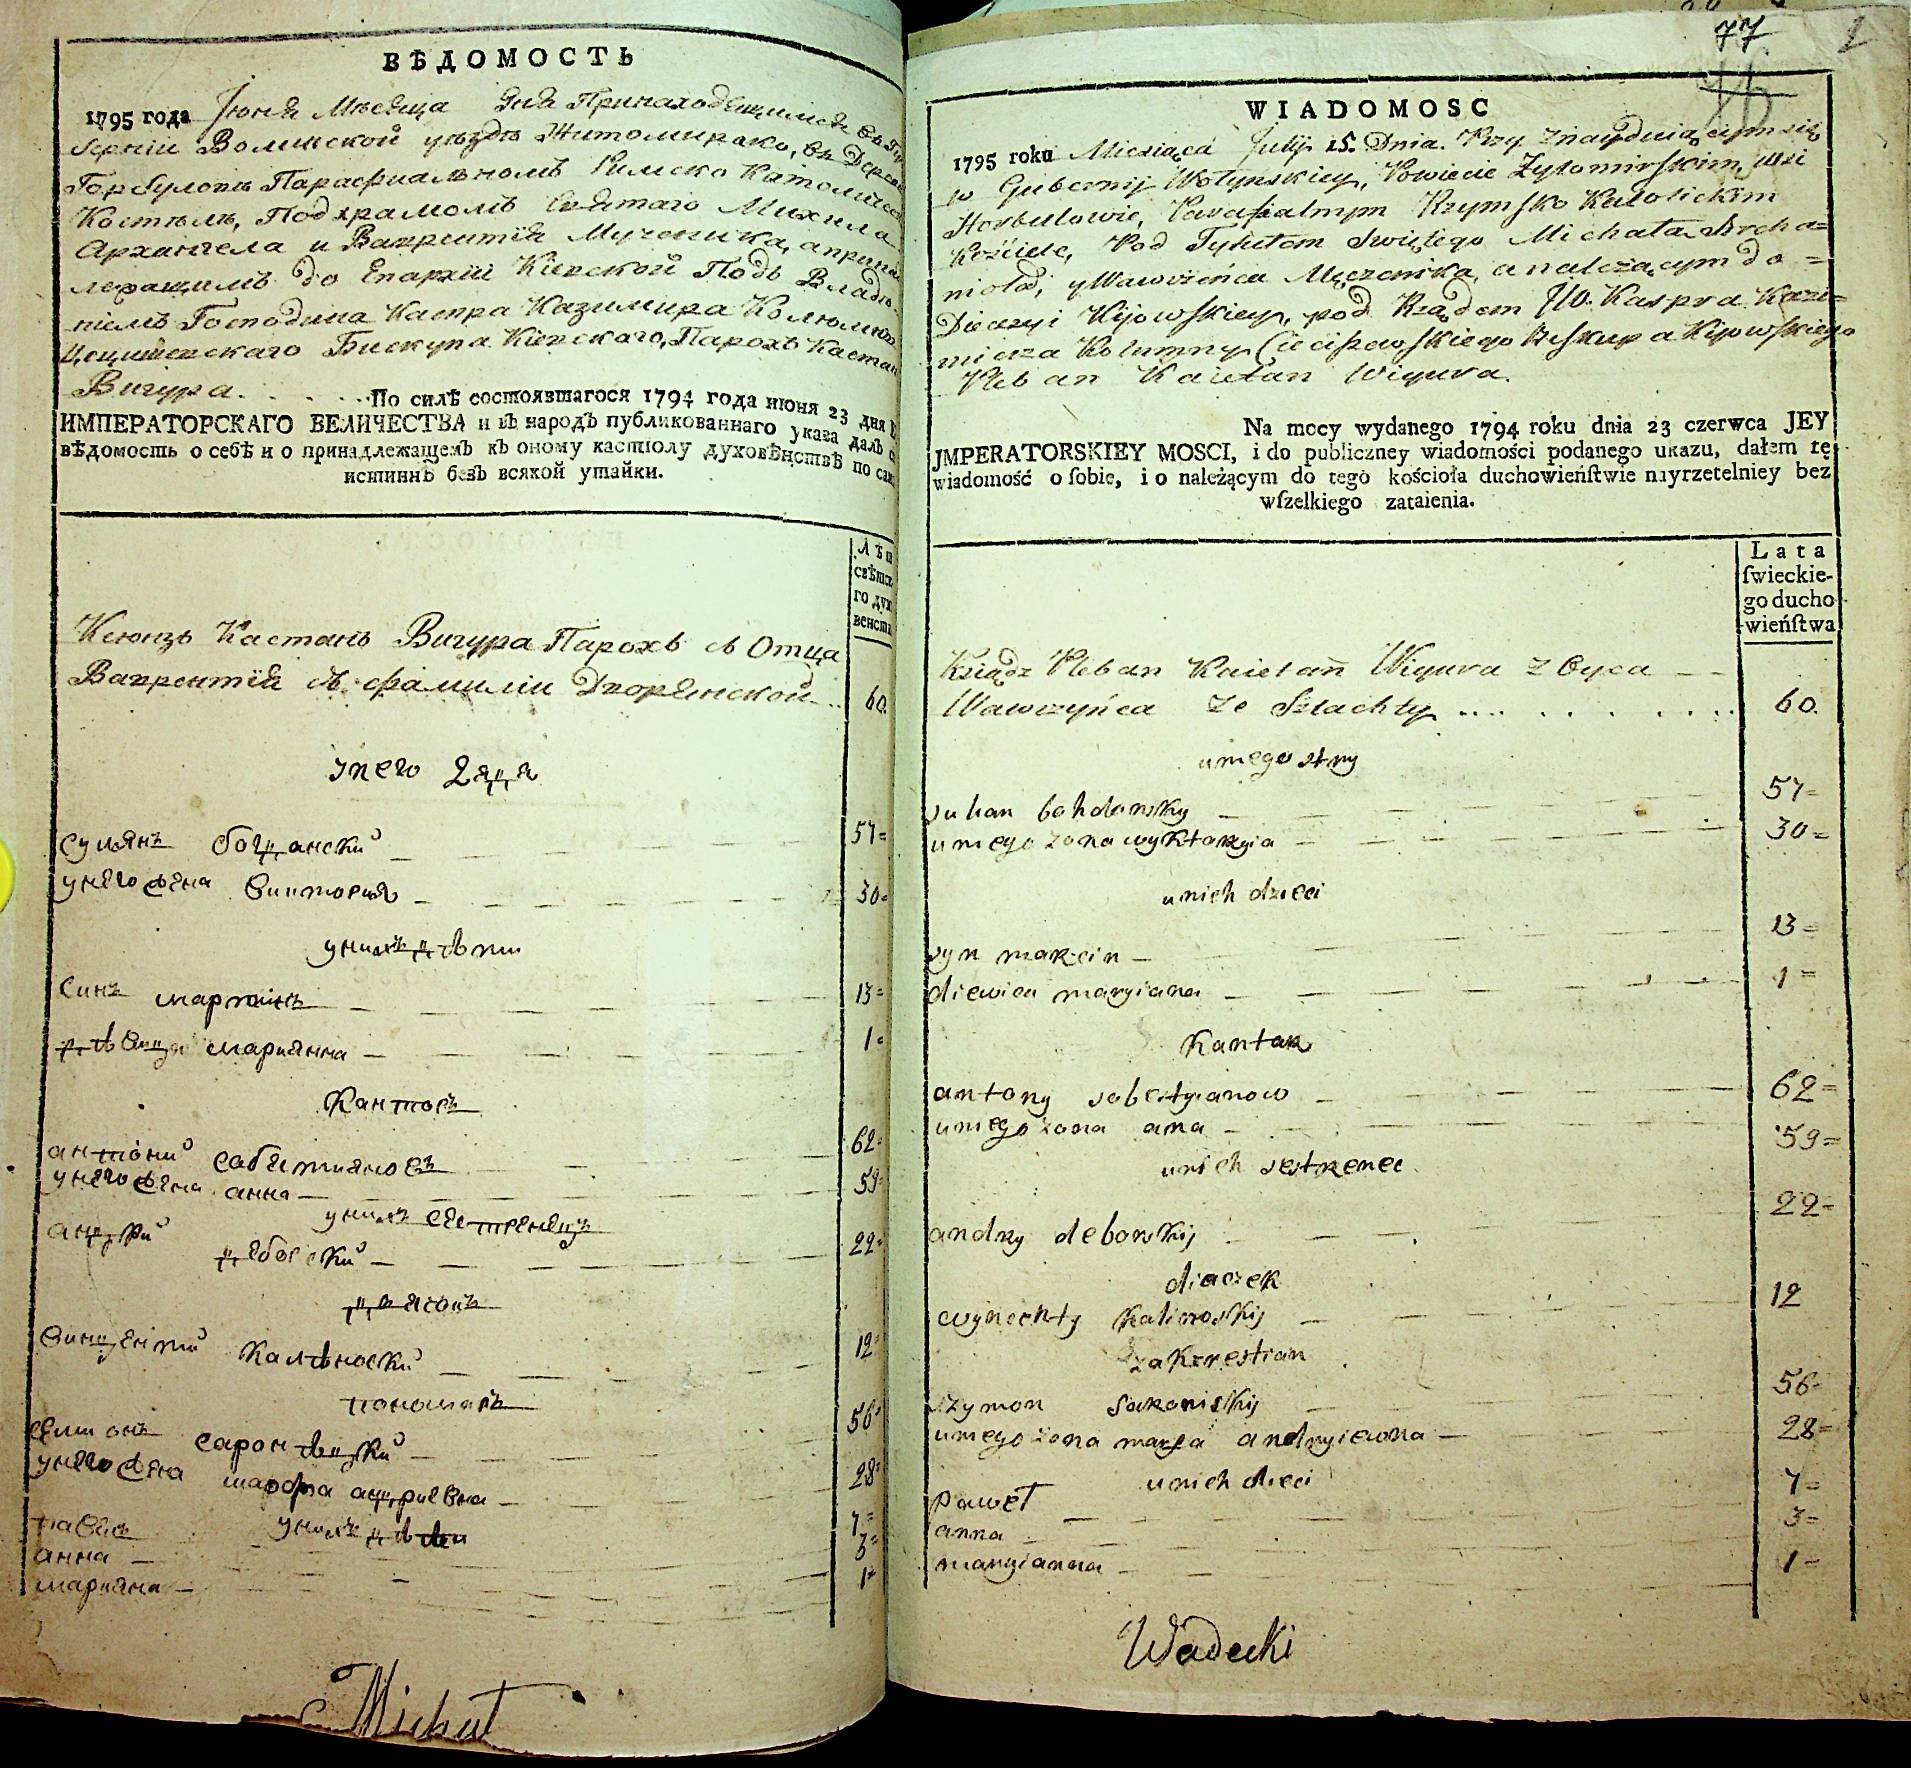 ВѢДОМОСТЬ
1795 года Іюня Мѣсяца дня Принаходящимся въ Гу
берніи Волинской уѣздѣ Житомирско, въ Деревн
Горбуловѣ Парафиальномъ Римско Католическ
Костѣлѣ, Подхрамомъ Святаго Михаила
Архангела и Ваврентія Мученика, априна
лежащимъ до Епархіи Кіевской Подъ Владѣ
ніемъ Господина Каспра Казимира Колюмны
Цецишевскаго Бискупа Кіевскаго, Парохъ Каетан
Вигура. . . . . .По силѣ состоявшагося 1794 года июня 23 дня Е
ИМПЕРАТОРСКАГО ВЕЛИЧЕСТВА и въ народъ публикованнаго указа далъ с
вѣдомость о себѣ и о принадлежащемъ къ оному кастіолу духовѣнствѣ по сам
истиннѣ безъ всякой утайки.
Лѣт
свѣтск
го дух
венств
Ксюнзъ Каетанъ Вигура Парохъ съ Отца
Ваврентія съ фамиліи Дворянской . . 60.
унего дядя
сулянъ богданский — 57=
унего жена виктория — 30=
унихъ дѣти
синъ мартинъ — 13=
дѣвица марианна — 1=
Канторъ
антоний сабестиановъ 62=
унего жена анна — 59=
унихъ сестренецъ
андрий деборский — 22=
дячокъ
винцентий калѣновский — 12=
пономаръ
симонъ саронѣцкий — 56=
унего жена марфа андриевна — 28=
унихъ дѣти
павелъ 7=
анна — 3=
марияна — 1=
Michał
77
WIADOMOSC
1795 roku Miesiąca Julij 15. Dnia. Przy Znayduiącym się
w Gubernij Wołynskiey, Powiecie Żytomirskim, wsi
Horbulowie, Parafialnym Rzymsko Katolickim
Kościele, Pod Tytułem Swiętego Michała Archa=
nioła, y Wawrzeńca Męczenika, a należącym do =
Diecezyi Kijowskiey, pod Rządem JW. Kaspra Kazi=
mierza Kolumny Cieciszewskiego Biskupa Kijowskiego
Pleban Kaietan Wigura.
Na mocy wydanego 1794 roku dnia 23 czerwca JEY
JMPERATORSKIEY MOSCI, i do publiczney wiadomości podanego ukazu, dałem tę
wiadomość o ſobie, i o należącym do tego kościoła duchowieńſtwie nayrzetelniey bez
wſzelkiego zataienia.
Lata
ſwieckie-
go ducho
wieńſtwa
Ksiądz Pleban Kaietan Wigura z Oyca — —
Wawrzyńca ze Szlachty .... . . . . . . 60.
umego stry
sulian bohdansky — 57=
umego zona wyktoryia — 30=
unich dzieci
syn marcin — 13=
diewica maryiana — 1=
Kantar
antony sabestyianow — 62=
umego zona ana — 59=
unich sestrenec
andry deborskij 22=
diaczek
wynenty Kalinoskij — 12
zakrzestian
szymon saroniskij 56=
umego zona marfa andryiewna — 28=
unich dieci
paweł — 7=
anna — 3=
maryianna — 1=
Wadecki